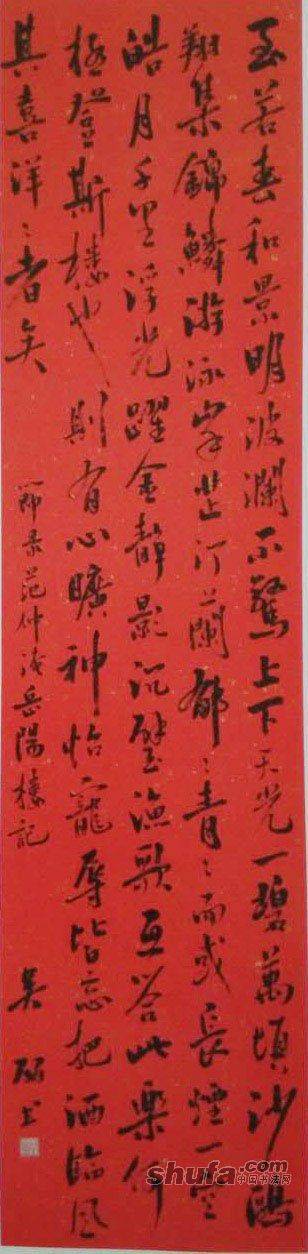 至若春和景明波瀾不驚上下天光一碧萬頃沙鷗
翔集錦鱗游泳岸芷汀蘭郁々青々而或長煙一空
皓月千里浮光躍金靜影沉璧漁歌互答此樂何
極登斯樓也則有心曠神怡寵辱皆忘把酒臨風
其喜洋々者矣
節录范仲淹岳陽樓記
吴书
shufa.com
中国书法网